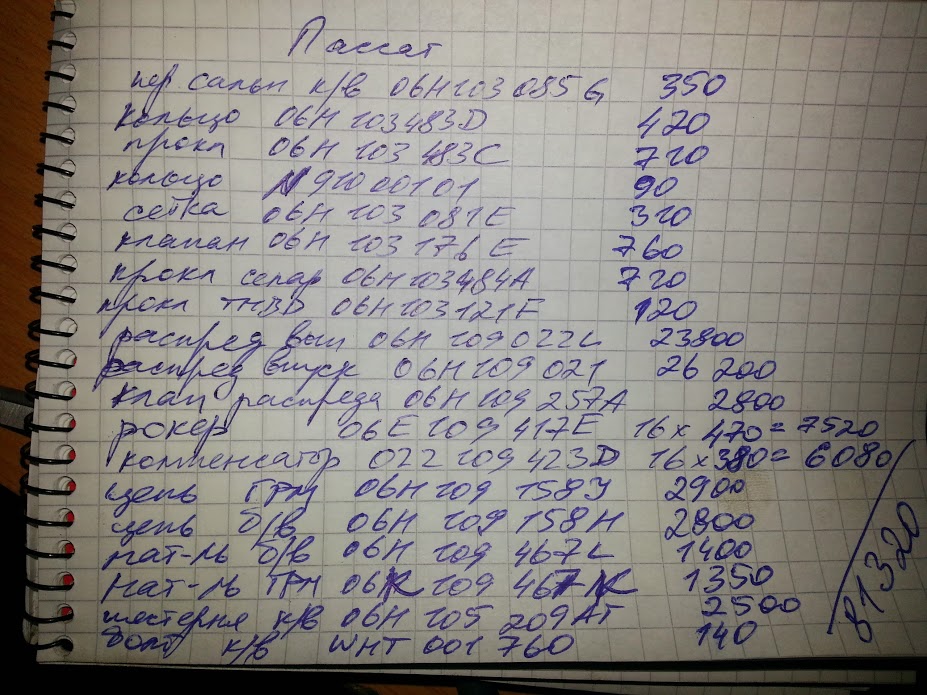 Пассат
пер сальн к/в 06H 103 085 G 350
кольцо 06H 103483D 420
прокл 06H 103 483C 720
кольцо N 910 001 01 90
сетка 06H 103 081E 310
клапан 06H 103 176 E 760
прокл сепар 06H 103484A 720
прокл ТНВД 06H103121F 120
распред вып 06H 109022L 23800
распред впуск 06H109021 26 200
клап распреда 06H 109 257A 2800
рокер 06E 109 417E 16 x 470 = 7520
компенсатор 022 109 423D 16 x 380 = 6080
цепь ГРМ 06H 109 158J 2900
цепь б/в 06H 109 158H 2800
нат-ль б/в 06H 109 467L 1400
нат-ль ГРМ 06K 109 467K 1350
шестерня к/в 06H 105 209AT 2500
болт к/в WHT 001 760 140
81320